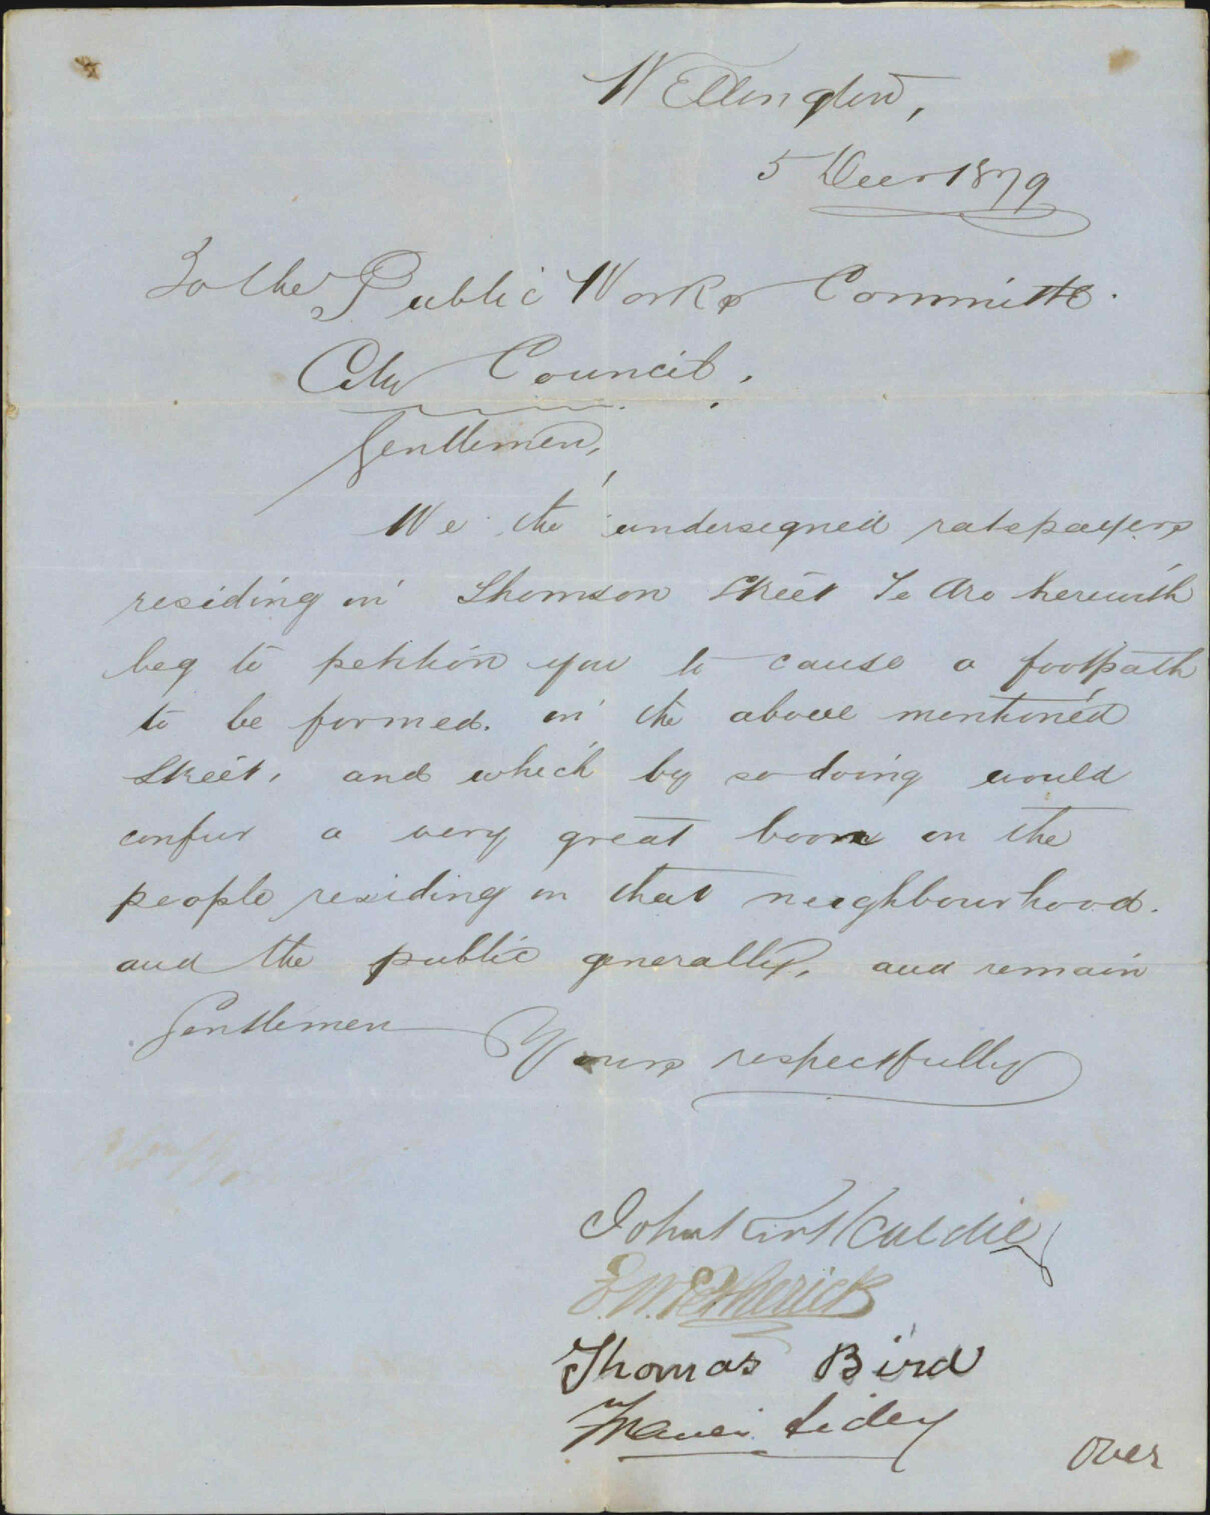 Wellington,
5 Decr 1879
To the Public Works Committe.
City Council.
Gentlemen,
We the undersigned ratepayers
residing in Thomson Street Te Aro herewith
beg to petition you to cause a footpath
to be formed. in the above mentioned
Street, and which by so doing would
confur a very great boon on the
people residing in that neighbourhood.
and the public generally, and remain
Gentlemen
Yours respectfully
John Kirk
E. W. Petherick
Thomas Bird
Francis Sidey
Over